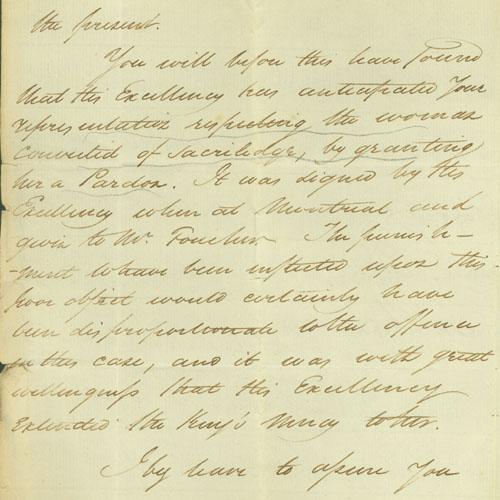 the present.
You will before this have found
that His Excellency has anticipated Your
representation respecting the woman
convicted of Sacriledge, by granting
her a Pardon. It was signed by His
Excellency when at Montreal and
given to Mr. Foucher. The punish-
-ment to have been inflicted upon this
poor object would certainly have
been disproportionate to the offence
in this case, and it was with great
willingness that His Excellency
Extended the King's Mercy to her.
I beg leave to assure You